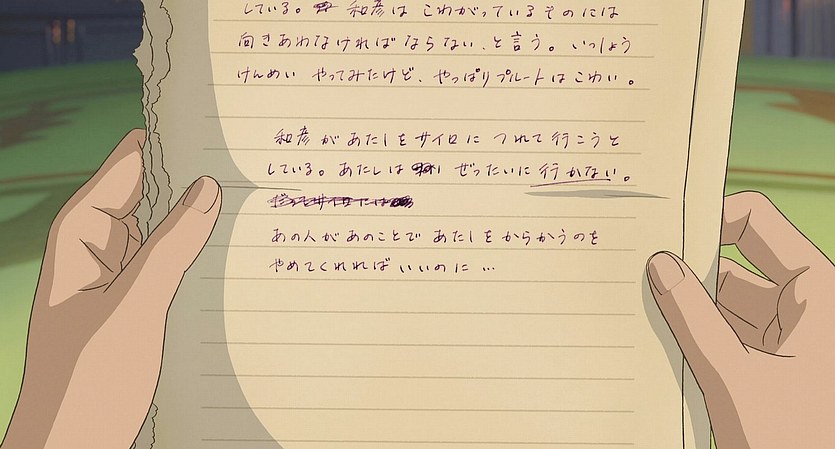 している。和彦は こわがっているものには
向きあわなければ ならない、と言う。いっしょう
けんめい やってみたけど、やっぱりプルートはこわい。
和彦があたしをサイロに つれて行こうと
している。あたしは ぜったいに行かない。
あの人があのことで あたしをからかうのを
やめてくれればいいのに…